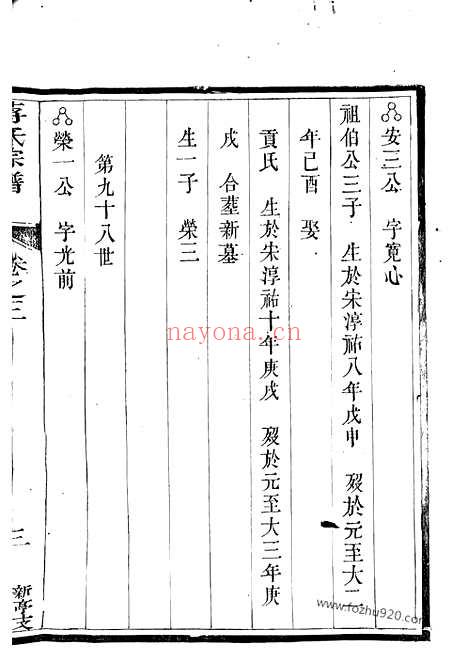 安三公 字寛心
祖伯公三子 生於宋淳祐八年戊申 歿於元至大二
年己酉 娶
貢氏 生於宋淳祐十年庚戌 歿於元至大三年庚
戌 合塟新墓
生一子 榮三
第九十八世
榮一公 字光前
氏宗譜 卷之三 三 新亭支
nayona.cn
www.fozhu920.com